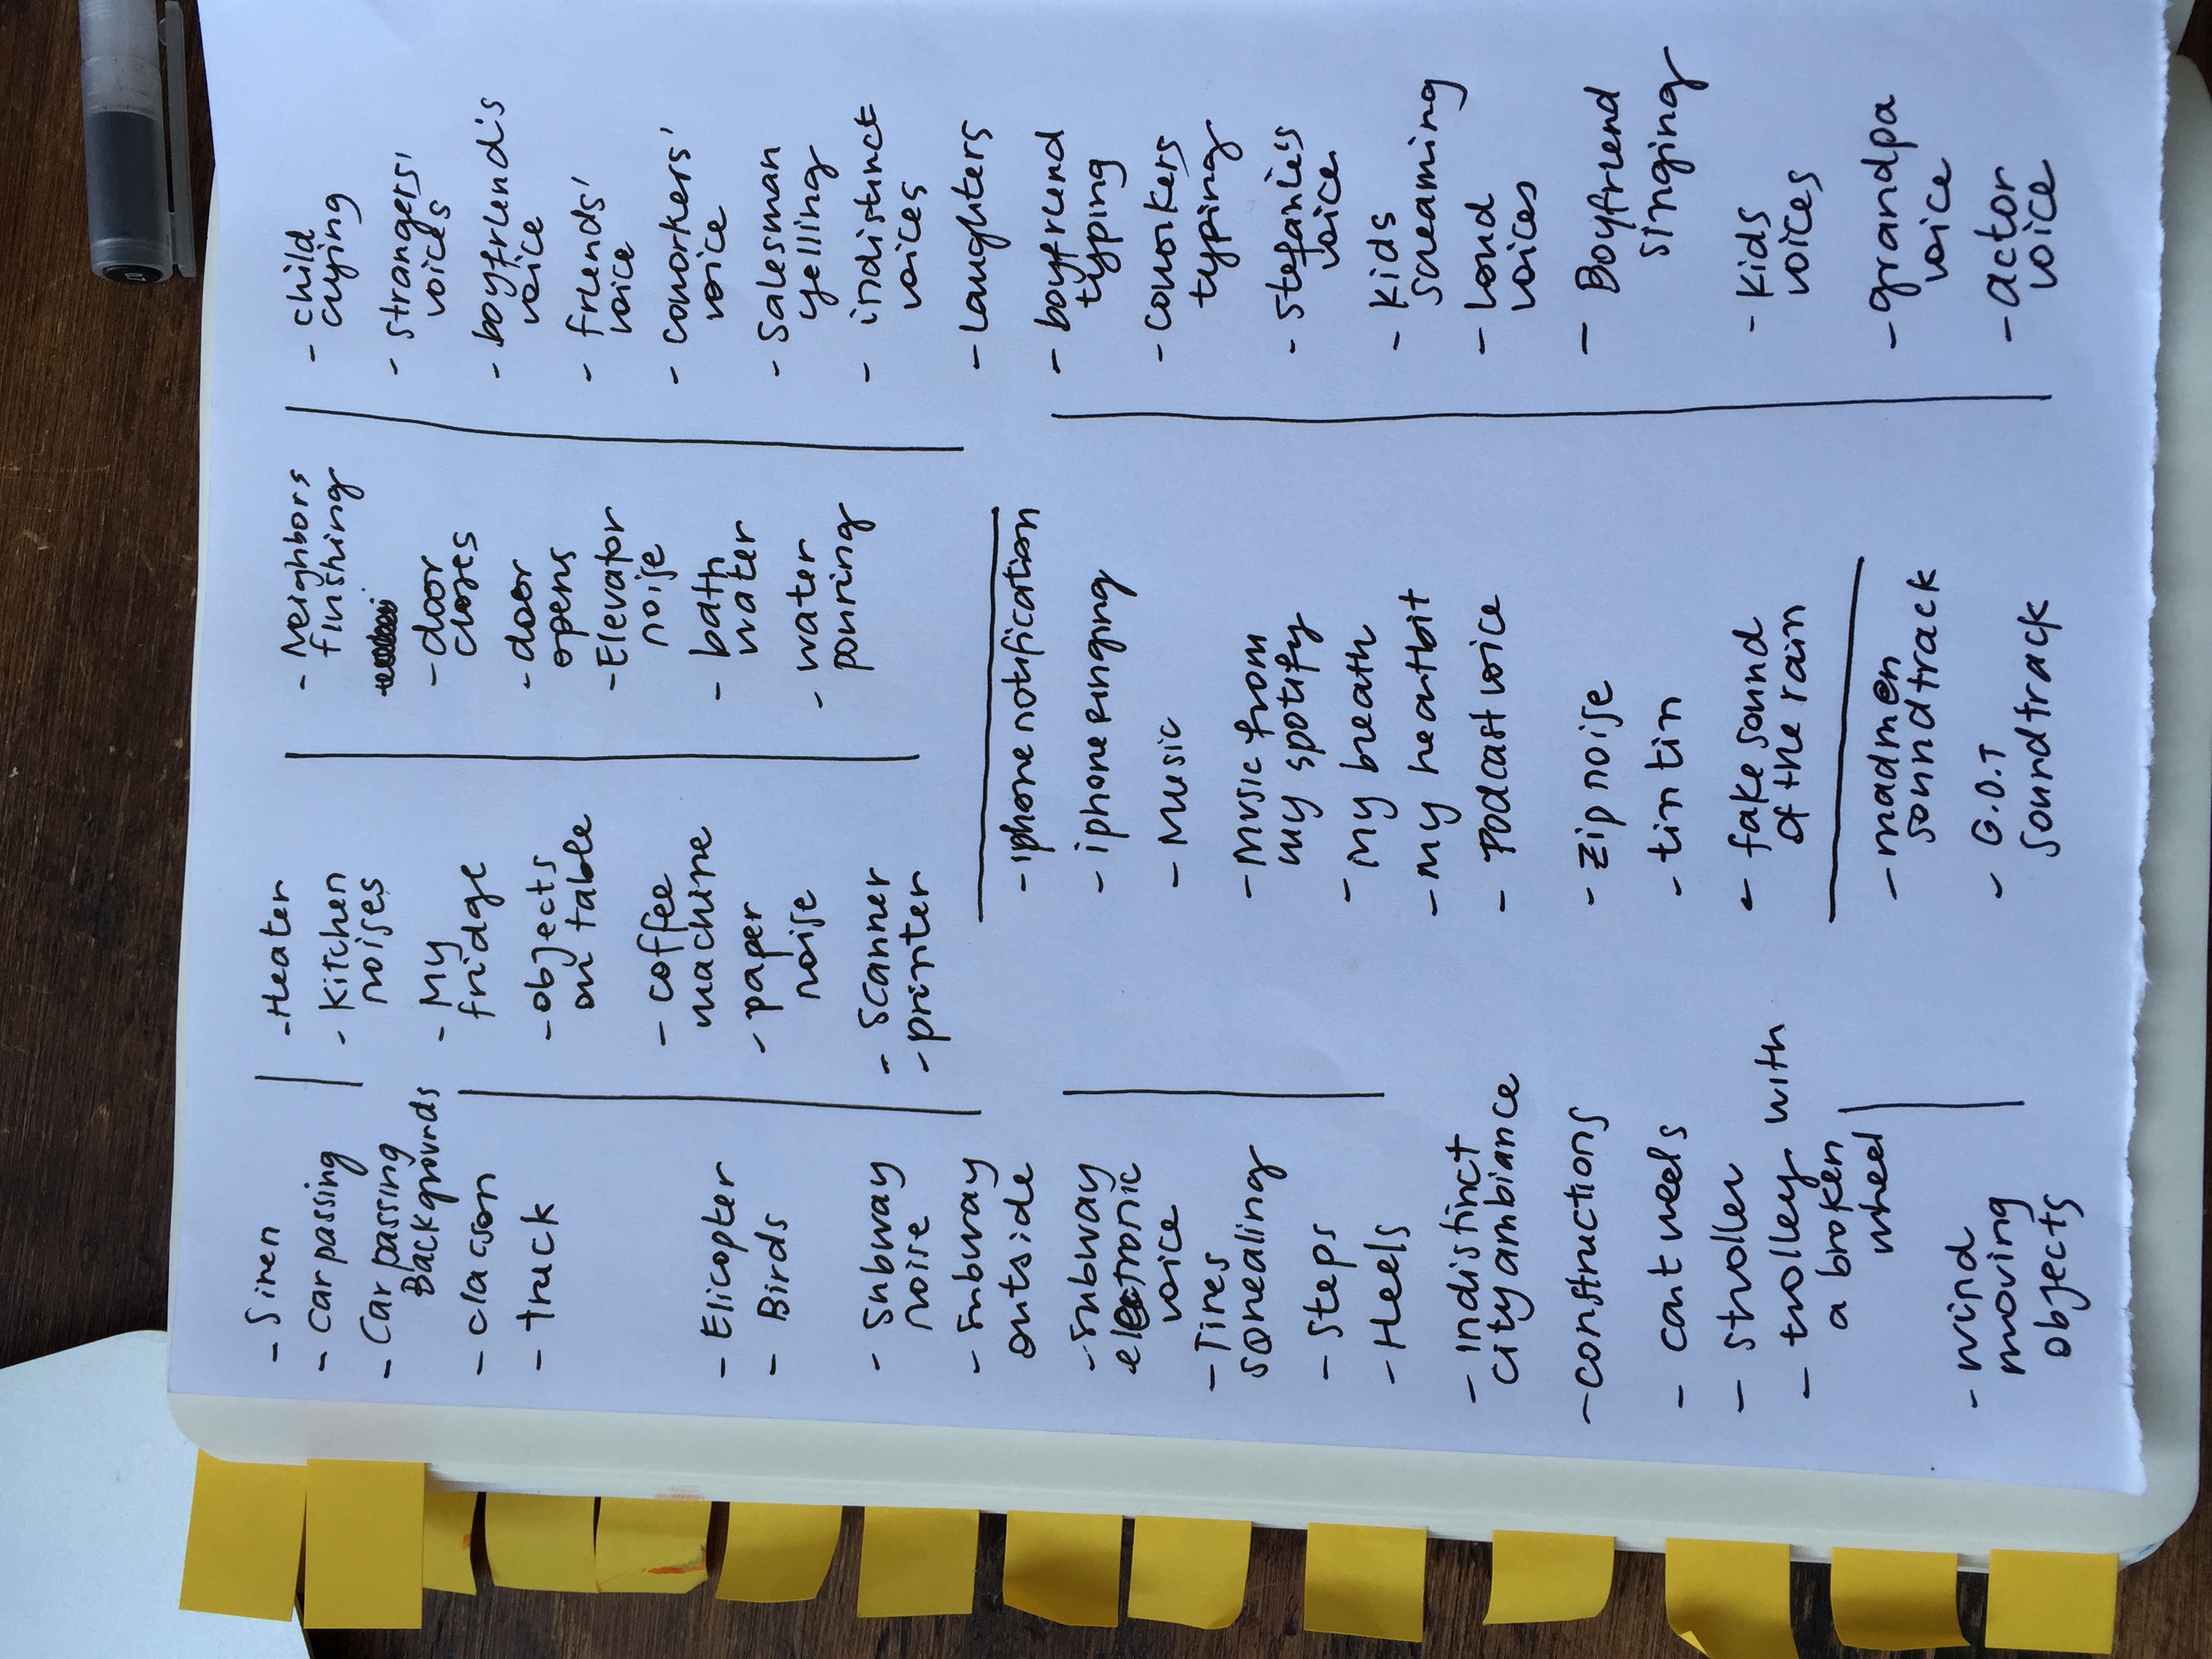 - Siren
- Car passing
- Car passing
Backgrounds
- clacson
- truck
- Elicopter
- Birds
- Subway
noise
- Subway
outside
- Subway
electronic
voice
- Tires
sqnealing
- Steps
- Heels
- Indistinct
city ambiance
- constructions
- cart weels
- stroller
- trolley with
a broken
wheel
- wind
moving
objects
- Heater
- Kitchen
noises
- My
fridge
- objects
on table
- coffee
machine
- paper
noise
- scanner
- printer
- Neighbors
flushing
- door
closes
- door
opens
- Elevator
noise
- bath
water
- water
pouring
- iphone notification
- iphone ringing
- Music
- Music from
my spotify
- My breath
- My heartbit
- Podcast voice
- zip noise
- tin tin
- fake sound
of the rain
- madmen
soundtrack
- G.O.T
Soundtrack
- child
crying
- strangers'
voices
- boyfriend's
voice
- friends'
voice
- coworkers'
voice
- Salesman
yelling
- indistinct
voices
- Laughters
- boyfriend
typing
- coworkers
typing
- Stefanie's
voice
- kids
screaming
- Loud
voices
- Boyfriend
singing
- kids
voices
- grandpa
voice
- actor
voice